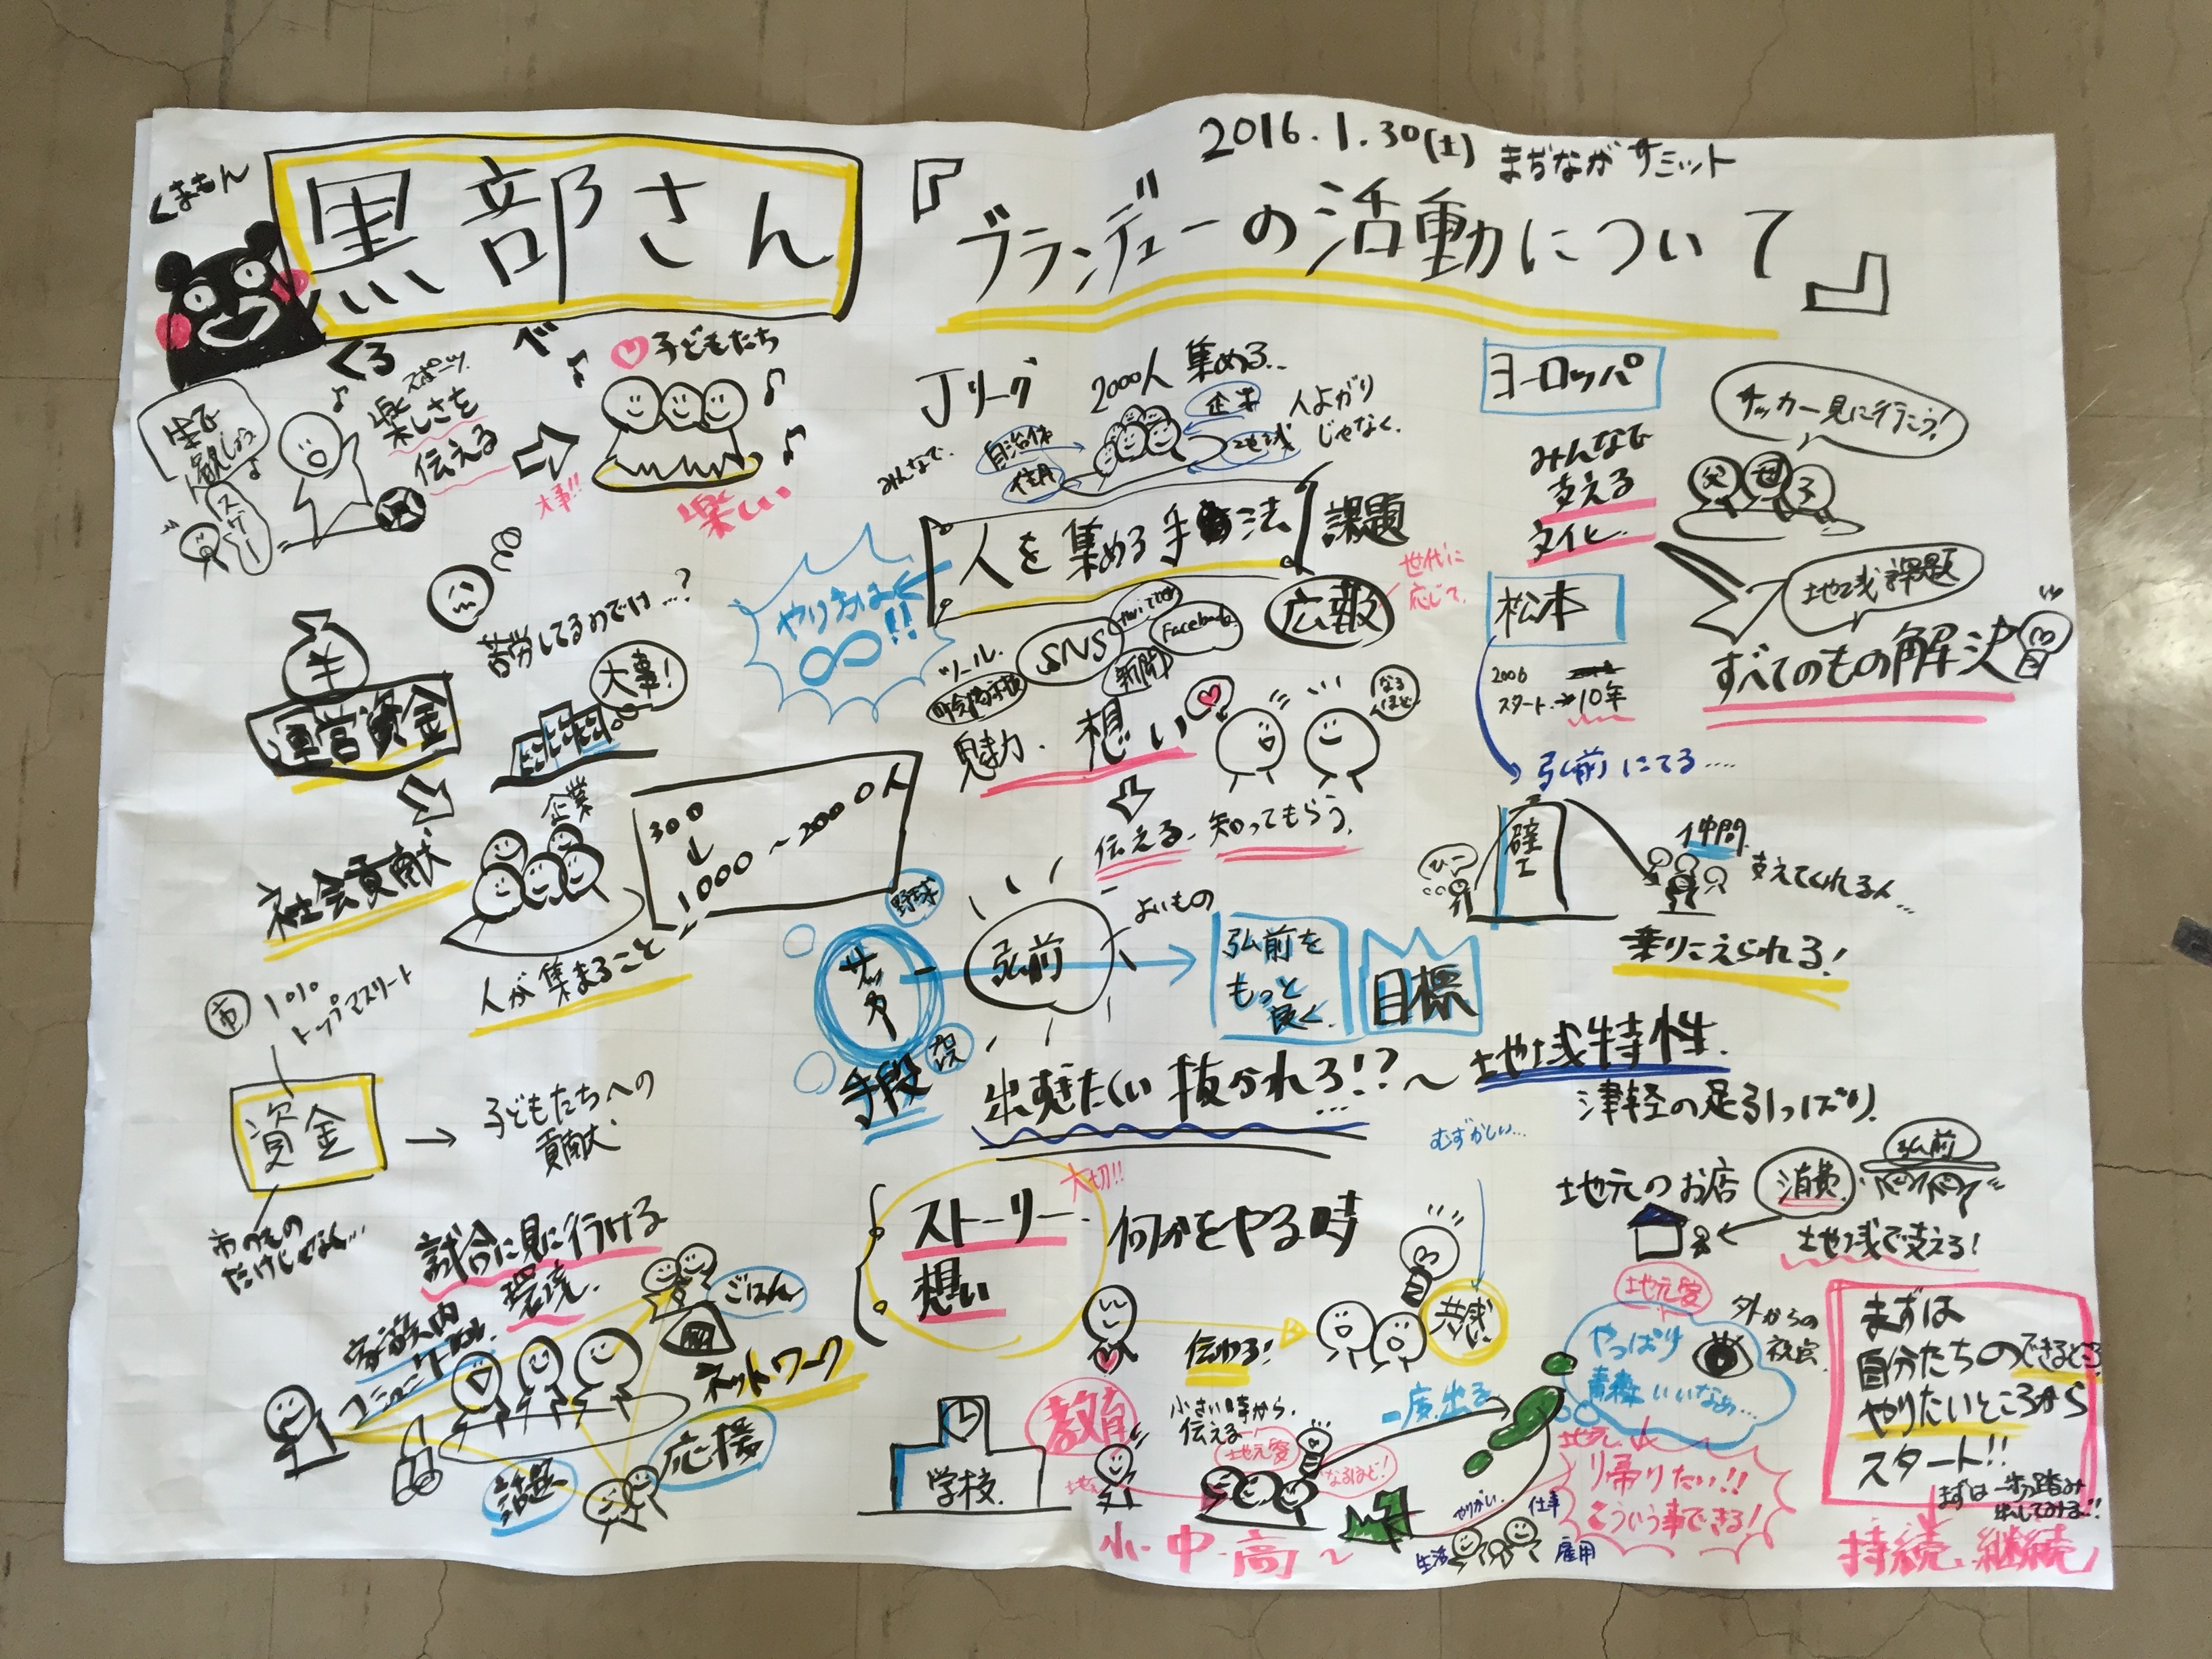 2016.1.30(土)
まぢながサミット
くまもん
黒部さん
くろべ
『ブランデューの活動について』
スポーツ
楽しさを
伝える
大事!!
子どもたち
楽しい
Jリーグ
2000人 集める..
みんなで.
自治体
企業
地域
人よがり
じゃなく.
人を集める手法
課題
やり方は
∞!!
広報
世代に
応じて.
ツール.
SNS
Twitter
Facebook
新聞
魅力・想い
なる
ほど
伝える 知ってもらう.
ヨーロッパ
みんなで
支える
文化
サッカー見に行こう!
父 母 子
地域課題
すべてのもの解決
松本
2006
スタート→10年
弘前にてる....
壁
仲間
支えてくれる人...
乗りこえられる!
苦労してるのでは...?
¥
運営資金
大事!
企業
社会貢献
300
↓
1000~2000人
人が集まること
市 1%
資金
→
子どもたちへの
貢献
市のもの
だけじゃなく...
野球
サッカー
手段
弘前
よいもの
弘前を
もっと
良く.
目標
出すぎたくい 抜かれる!?~地域特性.
津軽の足引っぱり.
むずかしい...
試合に見に行ける
環境.
家族内
コミュニケーション
ごはん
ネットワーク
話題
応援
ストーリー
想い
大切!!
何かをやる時
伝わる!
共感
地元のお店
消費
弘前
地域で支える!
学校
教育
小さい時から
伝える
地元愛
なるほど!
小・中・高~
一度出る
地元愛
やっぱり
青森いいなぁ...
外からの
視点
地元
り帰りたい!!
こういう事できる!
やりがい
仕事
生活
雇用
まずは
自分たちのできるところ
やりたいところから
スタート!!
まずは一歩踏み
出してみる!!
持続、継続